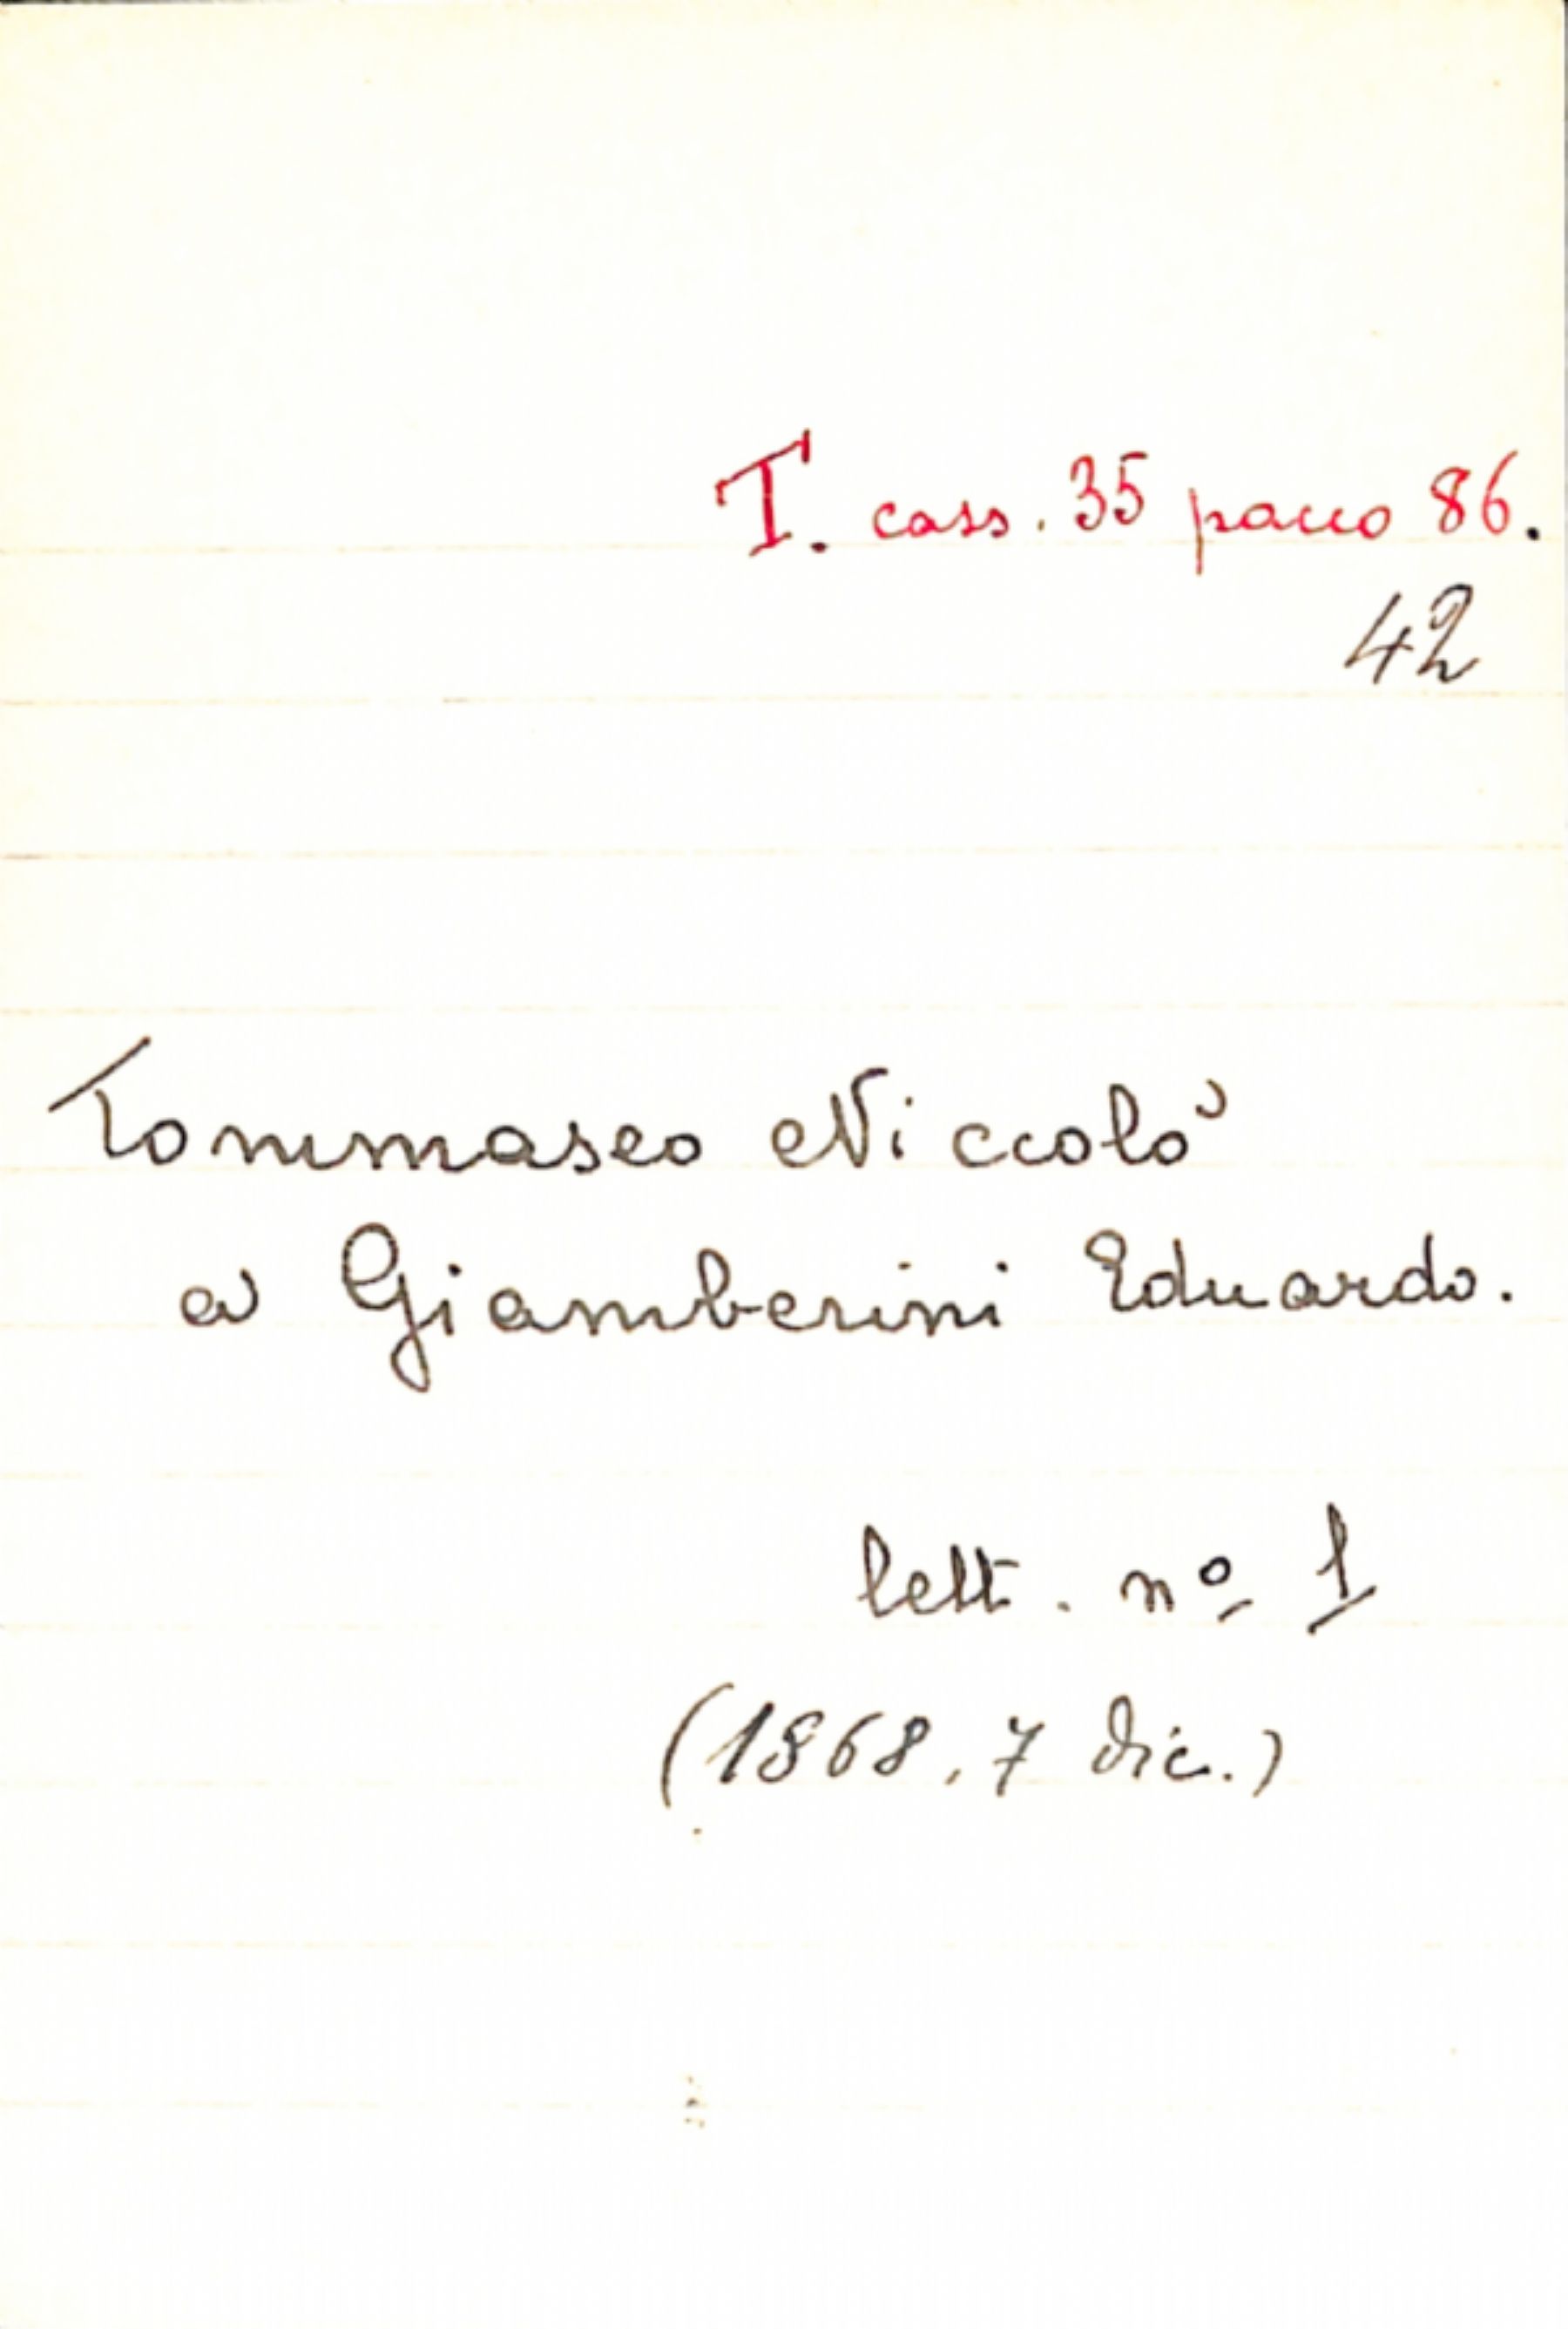 T. cass. 35 pacco 86.
42
Tommaseo Niccolò
a Giamberini Eduardo.
lett. nº 1
(1868, 7 dic.)